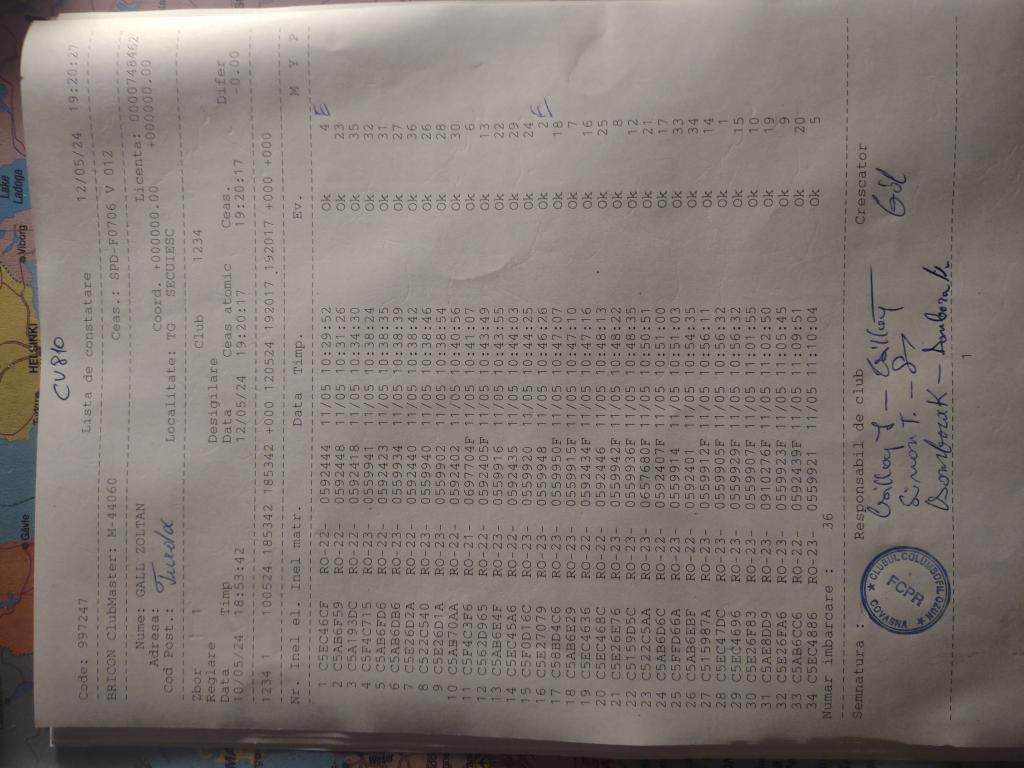 CV 810
Code: 997247 Lista de constatare 12/05/24 19:20:27
BRICON ClubMaster: M-44060 Ceas.: SPD-F0706 V 012
Nume: GALL ZOLTAN Licenta: 0000748462
Adresa: Coord. +000000.00 +000000.00
Cod Post.: Localitate: TG SECUIESC
Turda
Zbor 1 Club 1234
Reglare Desigilare
Data Timp Data Ceas atomic Ceas. Difer
10/05/24 18:53:42 12/05/24 19:20:17 19:20:17 -0.00
1234 1 100524 185342 185342 +000 120524 192017 192017 +000 +000
Nr. Inel el. Inel matr. Data Timp. Ev. M Y P
1 C5EC46CF RO-22- 0592444 11/05 10:29:52 Ok 4 E
2 C5AB6F59 RO-22- 0592448 11/05 10:31:26 Ok 23
3 C5A193DC RO-22- 0592418 11/05 10:34:30 Ok 35
4 C5F4C715 RO-23- 0559941 11/05 10:38:24 Ok 32
5 C5AB67D6 RO-22- 0592423 11/05 10:38:35 Ok 31
6 C5AB6DB6 RO-23- 0559934 11/05 10:38:39 Ok 27
7 C5E26D2A RO-22- 0592440 11/05 10:38:42 Ok 36
8 C522C540 RO-23- 0559940 11/05 10:38:46 Ok 26
9 C5E26D1A RO-23- 0559902 11/05 10:38:54 Ok 28
10 C5AB70AA RO-22- 0592402 11/05 10:40:56 Ok 30
11 C5F4C3F6 RO-21- 0697704F 11/05 10:41:07 Ok 6
12 C562D965 RO-22- 0592405F 11/05 10:43:49 Ok 13
13 C5AB6E4F RO-23- 0559916 11/05 10:43:55 Ok 22
14 C5EC45A6 RO-22- 0592435 11/05 10:44:03 Ok 29
15 C5F0D16C RO-23- 0559920 11/05 10:44:25 Ok 24
16 C5E27079 RO-23- 0559948 11/05 10:46:26 Ok 2 E
17 C59BD4C6 RO-23- 0559950F 11/05 10:47:07 Ok 18
18 C5AB6E29 RO-23- 0559915F 11/05 10:47:10 Ok 7
19 C5EC4636 RO-22- 0592434F 11/05 10:47:16 Ok 16
20 C5EC468C RO-22- 0592446 11/05 10:48:13 Ok 25
21 C5E26E76 RO-23- 0559942F 11/05 10:48:32 Ok 8
22 C5159D5C RO-23- 0559936F 11/05 10:48:35 Ok 12
23 C522C5AA RO-23- 0657680F 11/05 10:50:51 Ok 21
24 C5AB6D6C RO-22- 0592407F 11/05 10:51:00 Ok 17
25 C5FFD66A RO-23- 0559914 11/05 10:51:03 Ok 33
26 C5AB6EB5 RO-22- 0592401 11/05 10:54:35 Ok 34
27 C515987A RO-23- 0559912F 11/05 10:56:11 Ok 14
28 C5EC47DC RO-23- 0559905F 11/05 10:56:32 Ok 1
29 C5EC4696 RO-23- 0559929F 11/05 10:56:32 Ok 15
30 C5E26F83 RO-23- 0559907F 11/05 11:01:55 Ok 10
31 C5AE8DD9 RO-23- 0910276F 11/05 11:02:50 Ok 19
32 C5E22FA6 RO-23- 0559923F 11/05 11:05:45 Ok 9
33 C5AB6CC6 RO-22- 0592439F 11/05 11:09:51 Ok 20
34 C5EC4886 RO-23- 0559921 11/05 11:10:04 Ok 5
Numar imbarcare : 36
Semnatura : Responsabil de club Crescator
Simon T.
CLUBUL COLUMBOFIL OZUN
FCPR
COVASNA
1
Lake Ladoga
Viborg
HELSINKI
Gävle